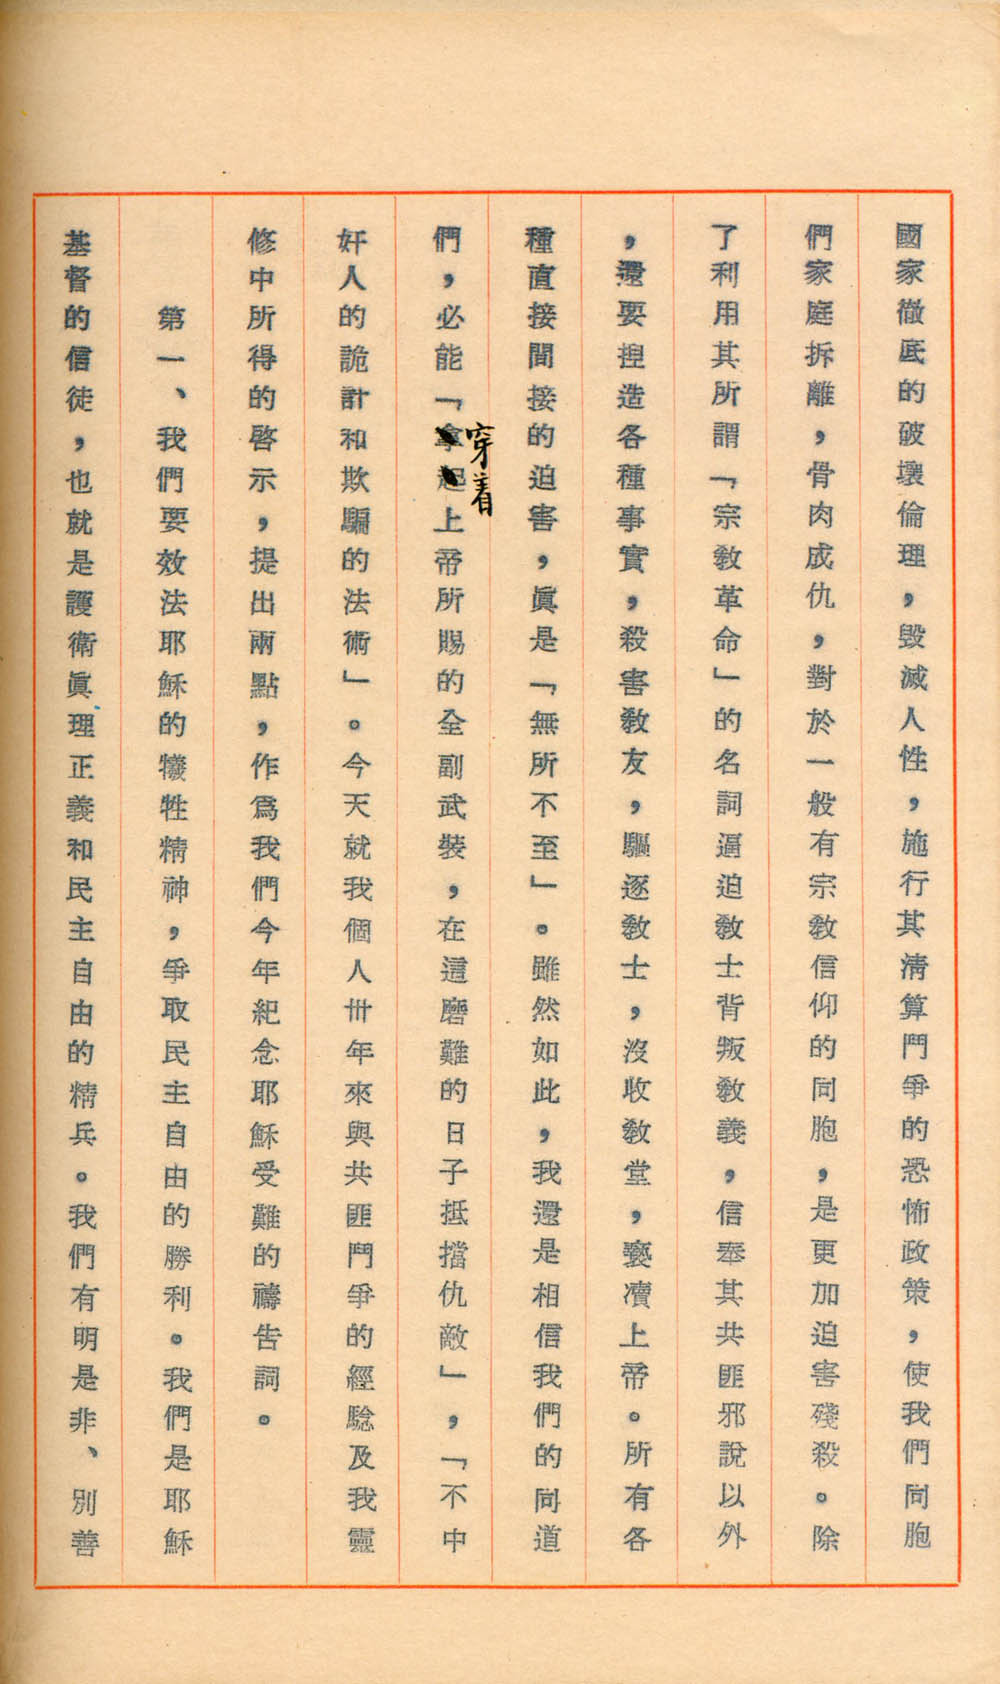 國家徹底的破壞倫理，毀滅人性，施行其清算鬥爭的恐怖政策，使我們同胞
們家庭拆離，骨肉成仇，對於一般有宗教信仰的同胞，是更加迫害殘殺。除
了利用其所謂「宗教革命」的名詞逼迫教士背叛教義，信奉其共匪邪說以外
，還要揑造各種事實，殺害教友，驅逐教士，沒收教堂，褻瀆上帝。所有各
種直接間接的迫害，眞是「無所不至」。雖然如此，我還是相信我們的同道
們，必能「拿起上帝所賜的全副武裝，在這磨難的日子抵擋仇敵」，「不中
穿着
奸人的詭計和欺騙的法術」。今天就我個人卅年來與共匪鬥爭的經驗及我靈
修中所得的啓示，提出兩點，作爲我們今年紀念耶穌受難的禱告詞。
第一、我們要效法耶穌的犧牲精神，爭取民主自由的勝利。我們是耶穌
基督的信徒，也就是護衛眞理正義和民主自由的精兵。我們有明是非、別善